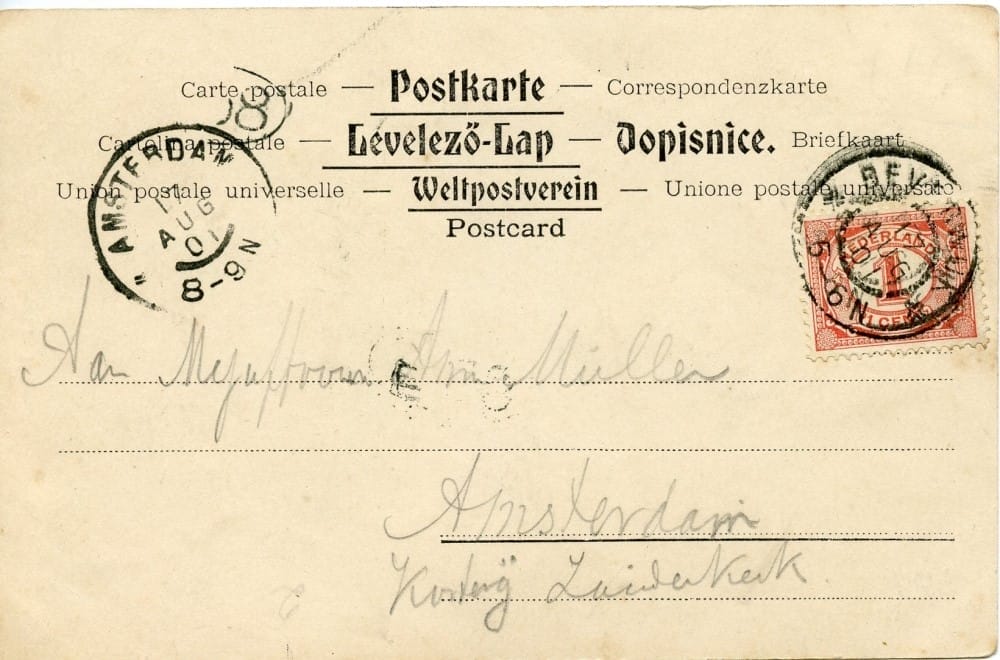 Carte postale — Postkarte — Correspondenzkarte
Cartolina postale — Levelező-Lap — Dopisnice. Briefkaart
Union postale universelle — Weltpostverein — Unione postale universale
Postcard
AMSTERDAM
17
AUG
01
8-9N
8
BEVERWIJK
17
AUG
01
5 6N
NEDERLAND
1
1 CENT
Aan Mejuffrouw Müller
E
Amsterdam
Zuiderkerk